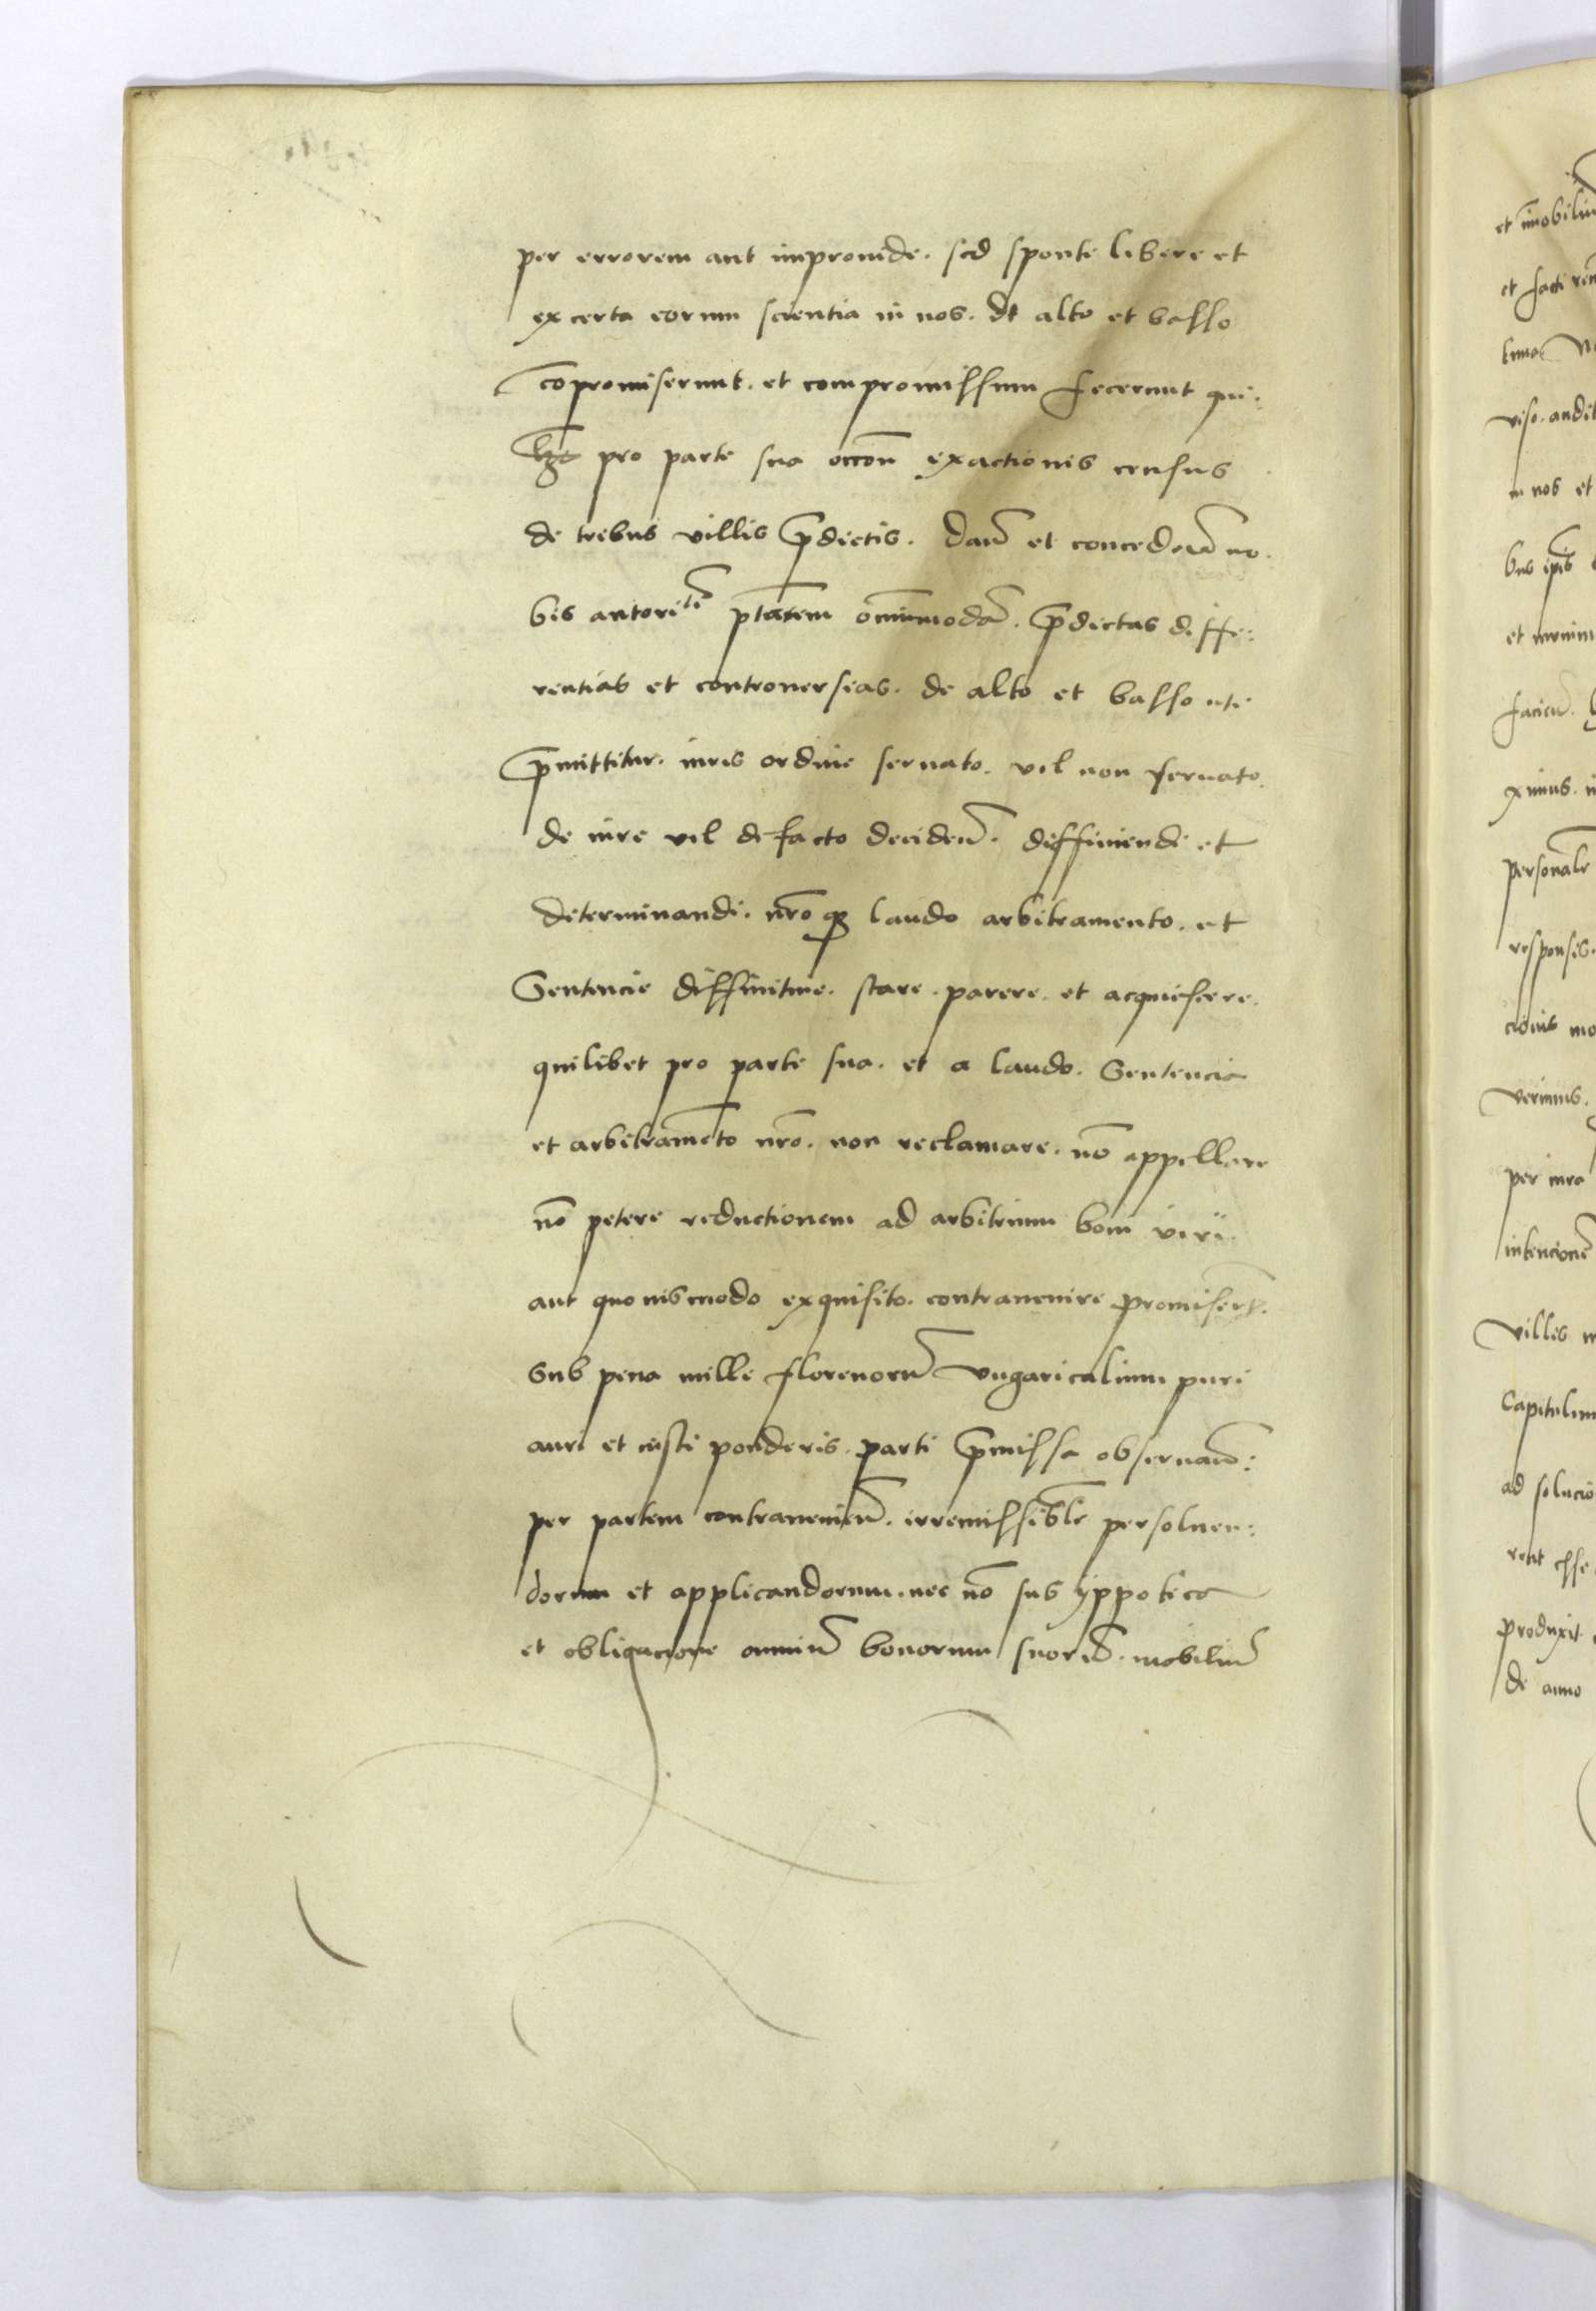 per errorem aut improuide. sed sponte libere et
ex certa eorum scientia in nos. de alto et basso
cōpromiserunt. et compromissum fecerunt qui:
lȝt pro parte sua occōn exactionis census
de tribus villis p̄dictis. dan̄ et conceden̄ no
bis autoritē ptātem om̄nimodā. p̄dictas diffe:
rentias et controuersias. de alto et basso uti
p̄mittitur. iuris ordine seruato. vel non seruato.
de iure vel de facto deciden̄. diffiniendi et
determinandi. nr̄o qʒ laudo arbitramento. et
Sentencie diffinitiue. stare. parere. et acquiescere.
quilibet pro parte sua. et a laudo. Sentencia
et arbitramēto nr̄o. non reclamare. nō appellare
nō petere reductionem ad arbitrium boni viri
aut quouismodo exquisito. contrauenire promiserūt.
Sub pena mille florenorū vngaricalium puri
auri et iusti ponderis. parti p̄missa obseruan̄:
per partem contrauenien̄. irremissiblr̄ persoluen:
dorum et applicandorum. nec nō sub yppoteca
et obligacione omniū bonorum suorū. mobiliū
et īmobiliū
et facti
viso. audit
in nos et
bus ipīs
et
facien̄.
ximus.
personalr̄
responsis.
verimus.
per iura
intencionē
villis
Capitulum
ad solucio
rent esse
produxit
de anno